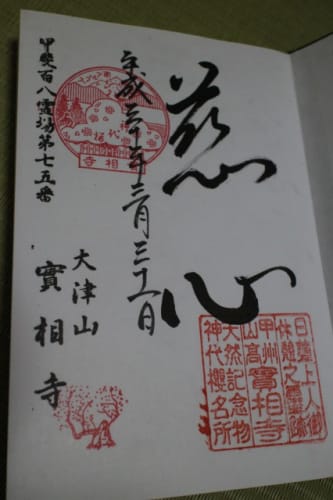 慈心
平成三十年三月三十一日
甲斐百八霊場第七五番
大津山
實相寺
神代桜
實相寺
日蓮上人御
休憩之霊跡
甲州實相寺
山高
天然記念物
神代櫻名所